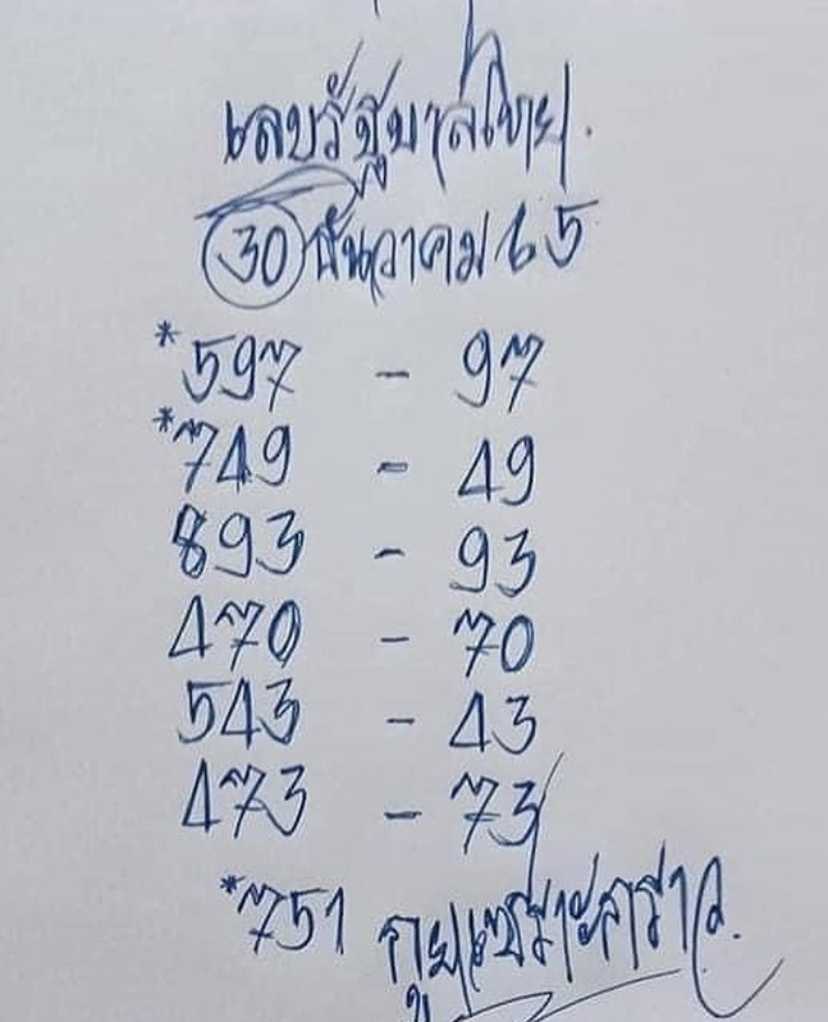 เลขรัฐบาลไทย.
30 ธันวาคม 65
*597 - 97
*749 - 49
893 - 93
470 - 70
543 - 43
473 - 73
*751